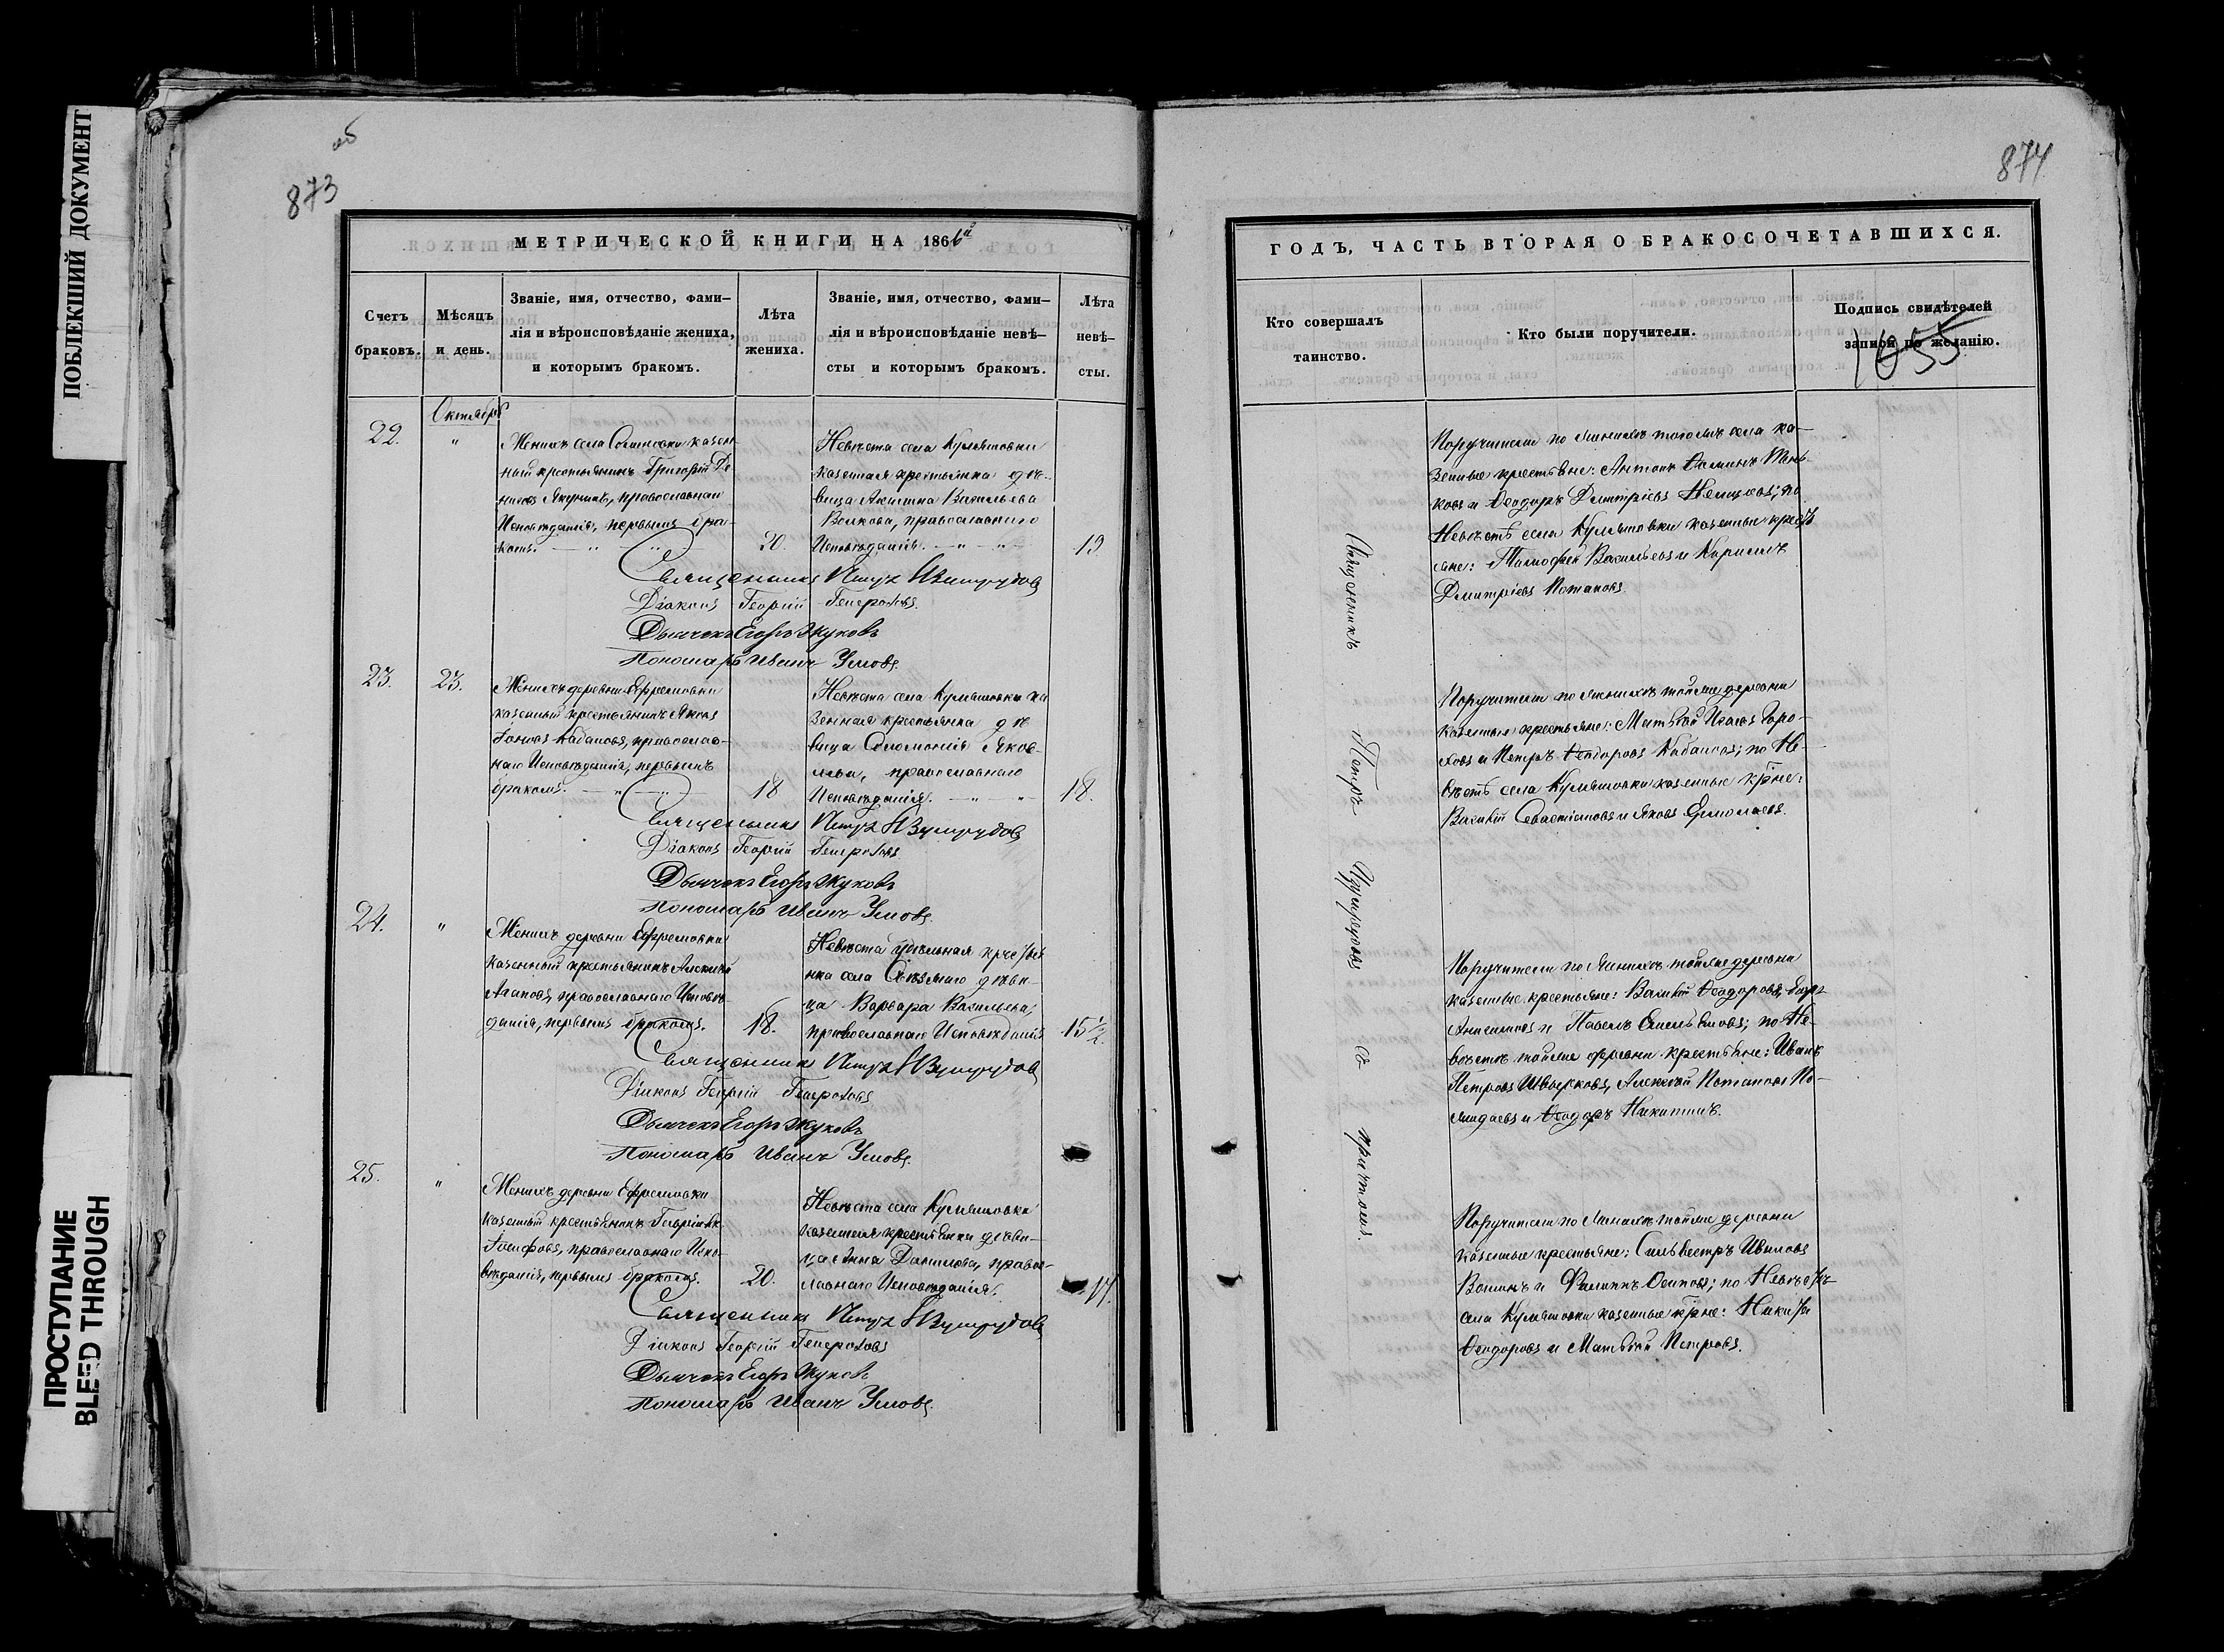 ПОБЛЕКШИЙ ДОКУМЕНТ
ПРОСТУПАНИЕ
BLEED THROUGH
об
873
МЕТРИЧЕСКОЙ КНИГИ НА 1866й
Счетъ браковъ.
Мѣсяцъ и день.
Званіе, имя, отчество, фами-
лія и вѣроисповѣданіе жениха,
и которымъ бракомъ.
Лѣта
жениха.
Званіе, имя, отчество, фами-
лія и вѣроисповѣданіе невѣ-
сты и которымъ бракомъ.
Лѣта
невѣ-
сты.
Октябрь
22.
"
Женихъ села казен
ный крестьянинъ Григорій Де
нисовъ православнаго
Исповѣданія, первымъ бра-
комъ.
20.
Невѣста села Кулясовки
казенная крестьянка дѣ-
вица Акилина Васильева
Волкова, православнаго
Исповѣданія.
19
Священникъ Петръ Изумрудовъ
Діаконъ Георгій Генерозовъ
Дьячекъ Егоръ Жуковъ
Пономарь Иванъ Умовъ.
23.
23.
Женихъ деревни Ефремовки
казенный крестьянинъ Яковъ
Кабановъ, православ-
наго Исповѣданія, первымъ
бракомъ.
18
Невѣста села Кулясовки ка
зенная крестьянка дѣ
вица Соломонія Яков-
лева, православнаго
Исповѣданія.
18.
Священникъ Петръ Изумрудовъ
Діаконъ Георгій Генерозовъ
Дьячекъ Егоръ Жуковъ
Пономарь Иванъ Умовъ.
24.
"
Женихъ деревни Ефремовки
казенный крестьянинъ Алексѣй
Агаповъ, православнаго Исповѣ-
данія, первымъ бракомъ.
18.
Невѣста удѣльная крестья
нка села дѣви-
ца Варвара Васильева,
православнаго Исповѣданія
15 1/2.
Священникъ Петръ Изумрудовъ
Діаконъ Георгій Генерозовъ
Дьячекъ Егоръ Жуковъ
Пономарь Иванъ Умовъ.
25.
"
Женихъ деревни Ефремовки
казенный крестьянинъ Георгій
Іосифовъ, православнаго Испо-
вѣданія, первымъ бракомъ.
20.
Невѣста села Кулясовки
казенная крестьянка дѣви-
ца Анна Данилова, правос-
лавнаго Исповѣданія.
17.
Священникъ Петръ Изумрудовъ
Діаконъ Георгій Генерозовъ
Дьячекъ Егоръ Жуковъ
Пономарь Иванъ Умовъ.
874
ГОДЪ, ЧАСТЬ ВТОРАЯ О БРАКОСОЧЕТАВШИХСЯ.
Кто совершалъ
таинство.
Кто были поручители.
Подпись свидѣтелей
записи по желанію.
1055
Священникъ Петръ Изумрудовъ съ причтомъ.
Поручители по женихѣ тогоже села ка-
зенные крестьяне: Антонъ
ковъ и Ѳеодоръ Димитріевъ Немцовъ; по
Невѣстѣ села Кулясовки казенные кресть
яне: Тимофей Васильевъ и Кириллъ
Димитріевъ Потаповъ.
Поручители по женихѣ тойже деревни
казенные крестьяне: Матвѣй
и Петръ Ѳеодоровъ Кабановъ; по Не-
вѣстѣ села Кулясовки казенные кр-не:
Василій Севастіановъ и Яковъ Ермолаевъ.
Поручители по женихѣ тойже деревни
казенные крестьяне: Василій Ѳеодоровъ, Егоръ
Анисимовъ и Павелъ Емельяновъ; по Не-
вѣстѣ тойже деревни крестьяне: Иванъ
Петровъ Швырковъ, Алексѣй Потаповъ
и Ѳеодоръ Никитинъ.
Поручители по женихѣ тойже деревни
казенные крестьяне: Сильвестръ Ивановъ
и Филиппъ Осиповъ; по Невѣстѣ
села Кулясовки казенные кр-не: Никита
Ѳеодоровъ и Матвѣй Петровъ.